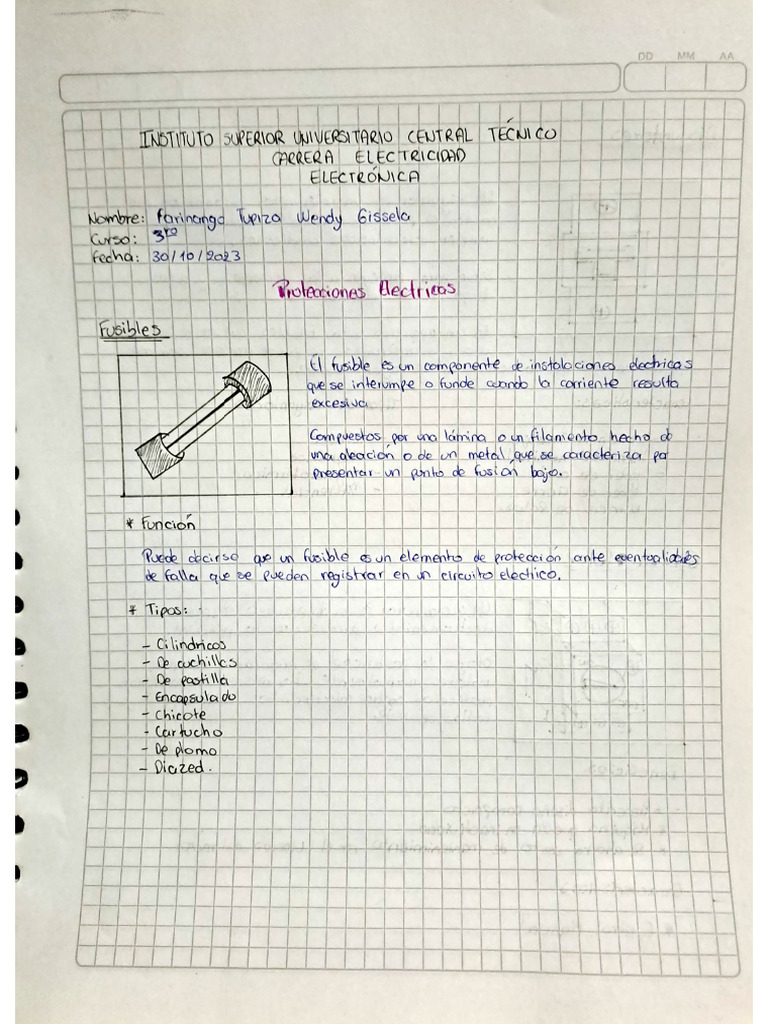 DD MM AA
INSTITUTO SUPERIOR UNIVERSITARIO CENTRAL TÉCNICO
CARRERA ELECTRICIDAD
ELECTRÓNICA
Nombre: Farinango Tupiza Wendy Gissela
Curso: 3ro
Fecha: 30/10/2023
Protecciones Electricas
Fusibles
El fusible es un componente de instalaciones electricas
que se interumpe o funde cuando la corriente resulta
excesiva
Compuestos por una lámina o un filamento hecho d
una aleación o de un metal que se caracteriza po
presentar un punto de fusión bajo.
* Función
Puede decirse que un fusible es un elemento de protección ante eventualidades
de falla que se pueden registrar en un circuito electico.
* Tipos:
- Cilindricos
- De cuchillas
- De pastilla
- Encapsulado
- Chicote
- Cartucho
- De plomo
- Diazed.